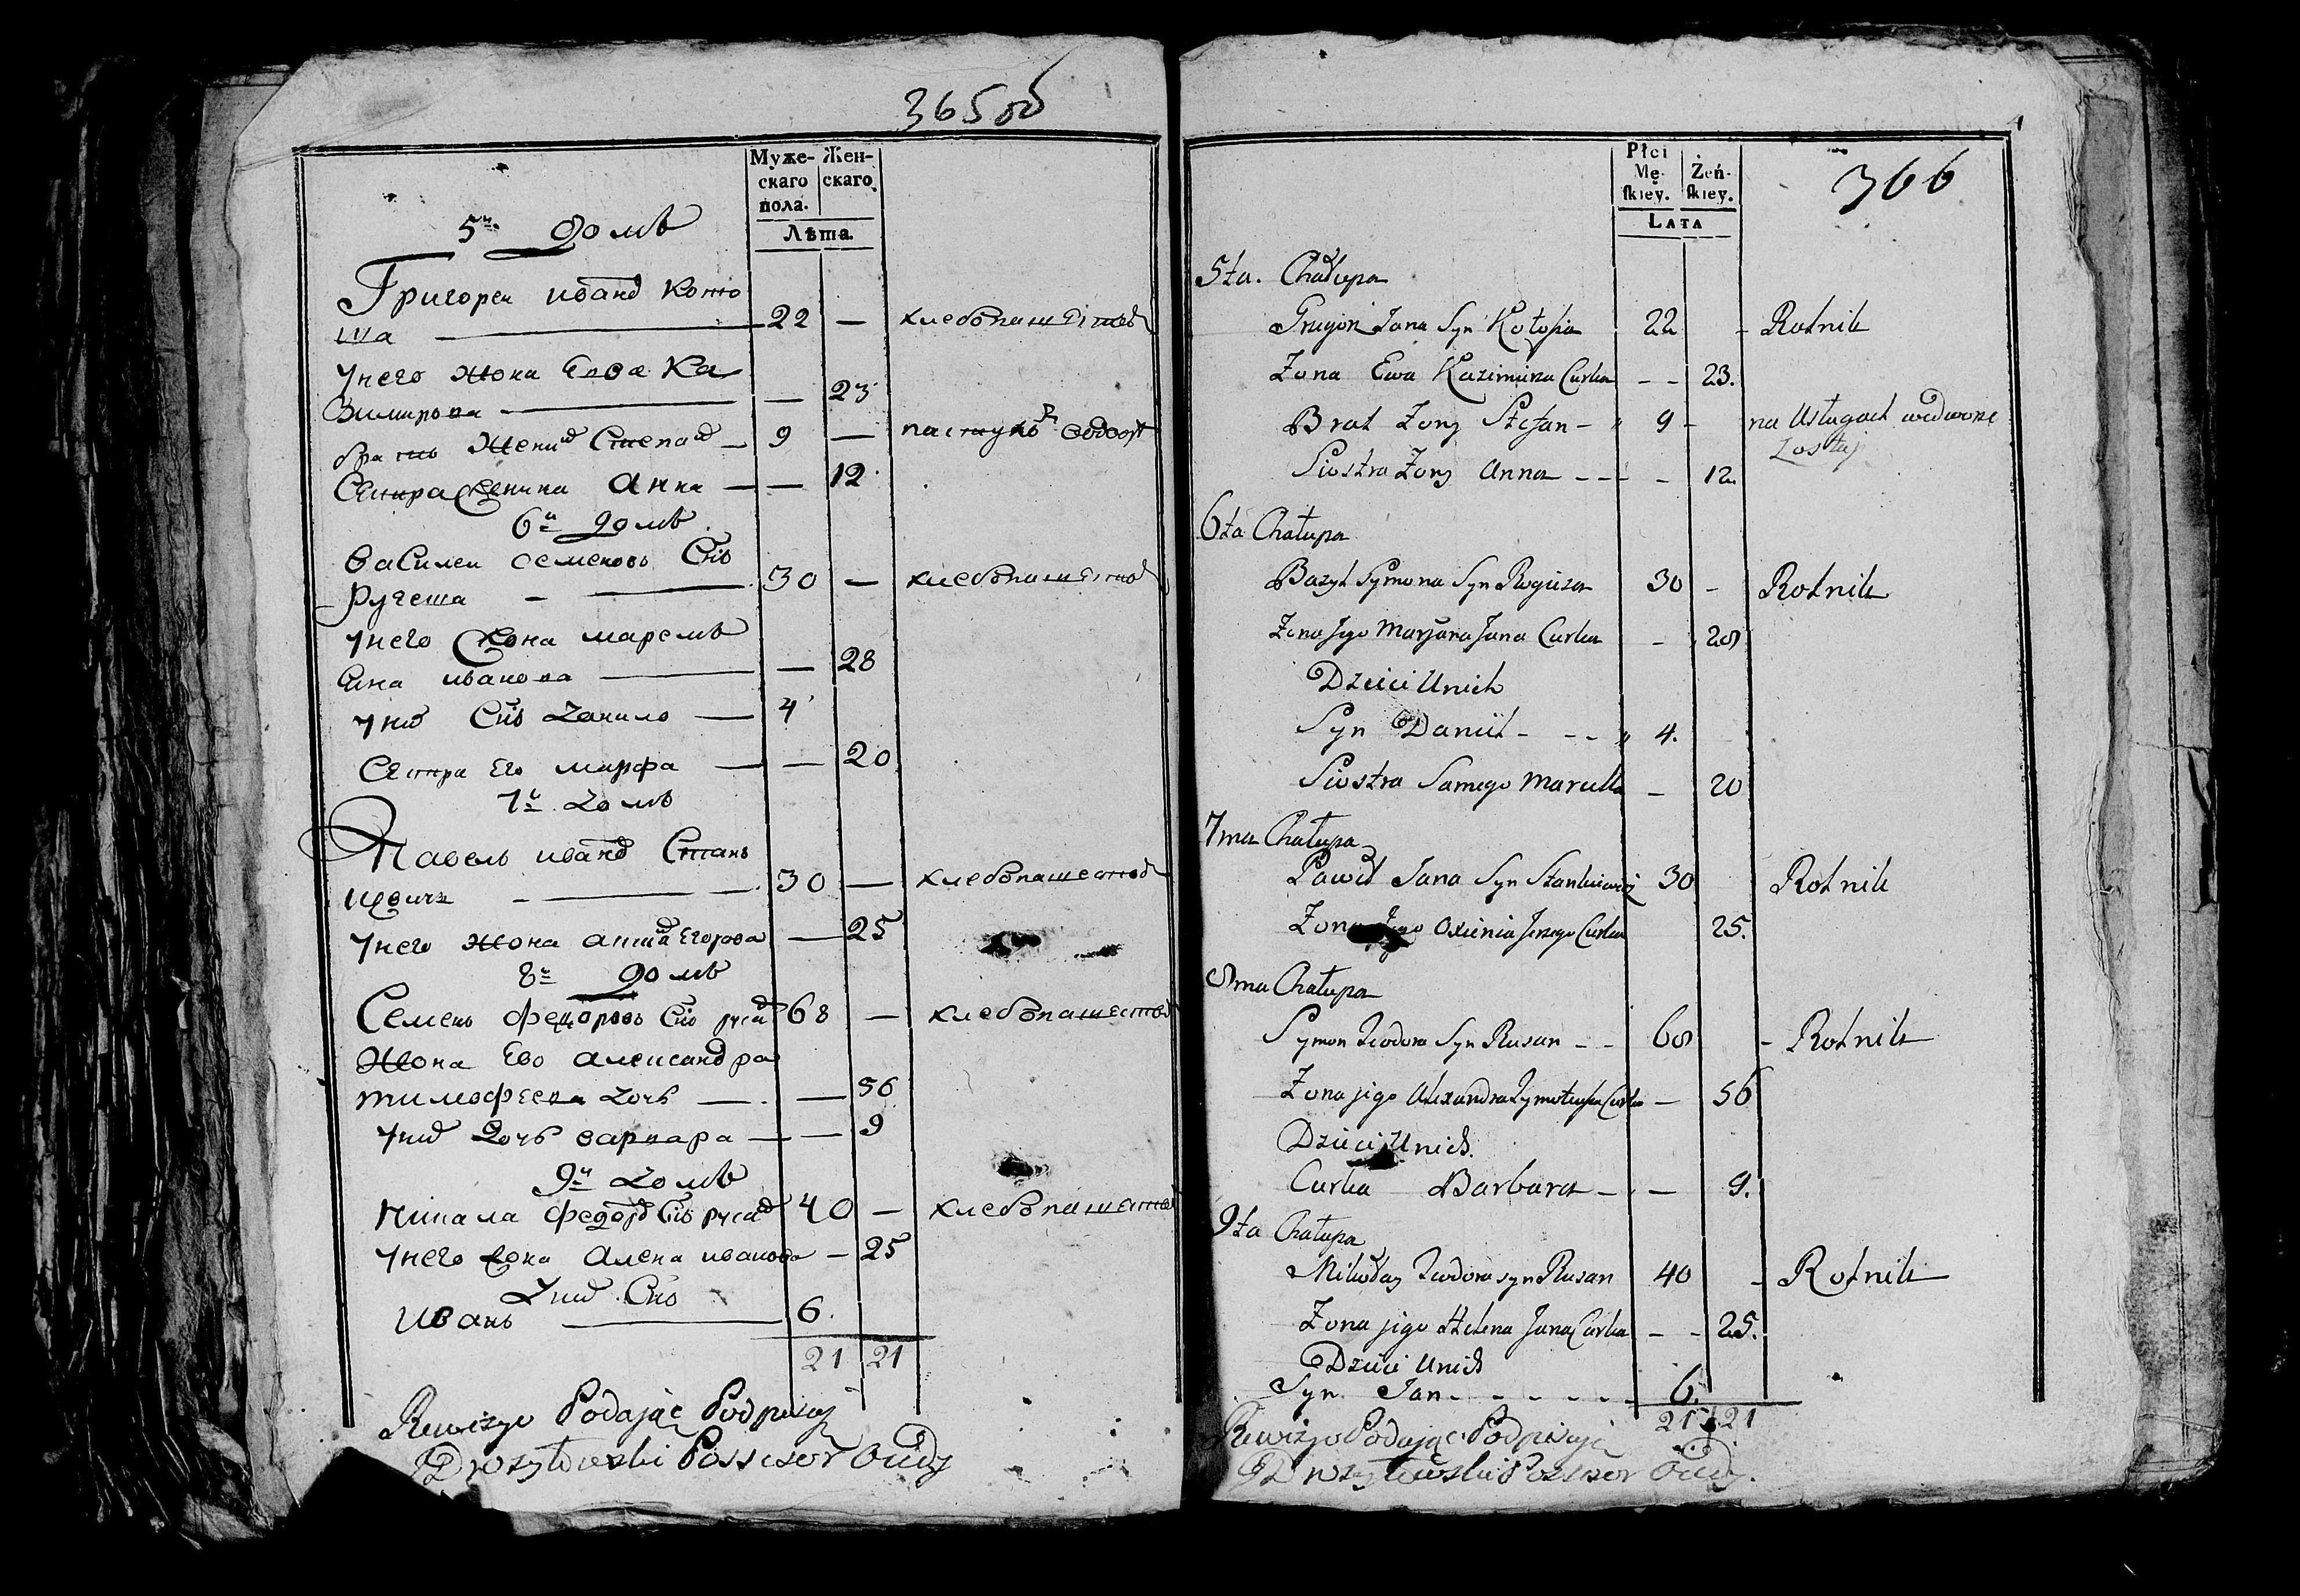 365об
Муже- Жен-
скаго скаго
пола.
Лѣта.
5й домъ
Григореи иванъ Кото
ша 22 — хлебопашествъ
унего жона Евва Ка
Зимирова — 23
братъ жены Степанъ — 9 — пастухъ
Сестра женина Анна — — 12
6й домъ
Василеи семеновъ Снъ
Ругеша — 30 — хлебопашествъ
унего жона марем
яна иванова — — 28
уних Снъ данило — 4
Сестра Его марфа — — 20
7й домъ
Павелъ иванъ Стань
кевичь — 30 — хлебопашествъ
унего жона Егорова — 25
8й домъ
Семенъ федоровъ Снъ русан 68 — хлебопашествъ
Жона Ево александра
тимофеева дочь — — 56
уних дочь варвара — — 9
9й домъ
Микала федоръ Снъ русан 40 — хлебопашествъ
унего жона Алена иванова — 25
уних Снъ
иванъ — 6.
21 21
Rewizyo Podając Podpisuję
Drozyłowski Possesor
Płci
Mę- Żeń-
ſkiey. ſkiey.
Lata
366
5ta. Chałupa
Gregor Jana Syn Kotosza 22 - Rolnik
Zona Ewa Kazimirza Curka - - 23.
Brat Zony Stefan - 9 - na Usługach wedworze
Zostaj
Siostra Zony Anna - - - - 12.
6ta Chałupa
Bazyl Symona Syn Rogusza 30 - Rolnik
Zona Jego Marjana Jana Curka - 28
Dzieci Unich
Syn Daniił - - - 4.
Siostra Samego Marcella - 20
7ma Chałupa
Paweł Jana Syn Stankiewicz 30 Rolnik
Zona Jego Oxienia Jerzego Curka 25.
8ma Chałupa
Symon Teodora Syn Rusan - - 68 - Rolnik
Zona jego Alexandra Tymoteusza Curka - 56
Dzieci Unich.
Curka Barbara - - - 9.
9ta Chałupa
Mikołay Teodora syn Rusan 40 - Rolnik
Zona jego Helena Jana Curka - - 25.
Dzieci Unich
Syn Jan - - - - - - 6.
21 21
Rewizyo Podając Podpisuję
Drozyłowski Possesor